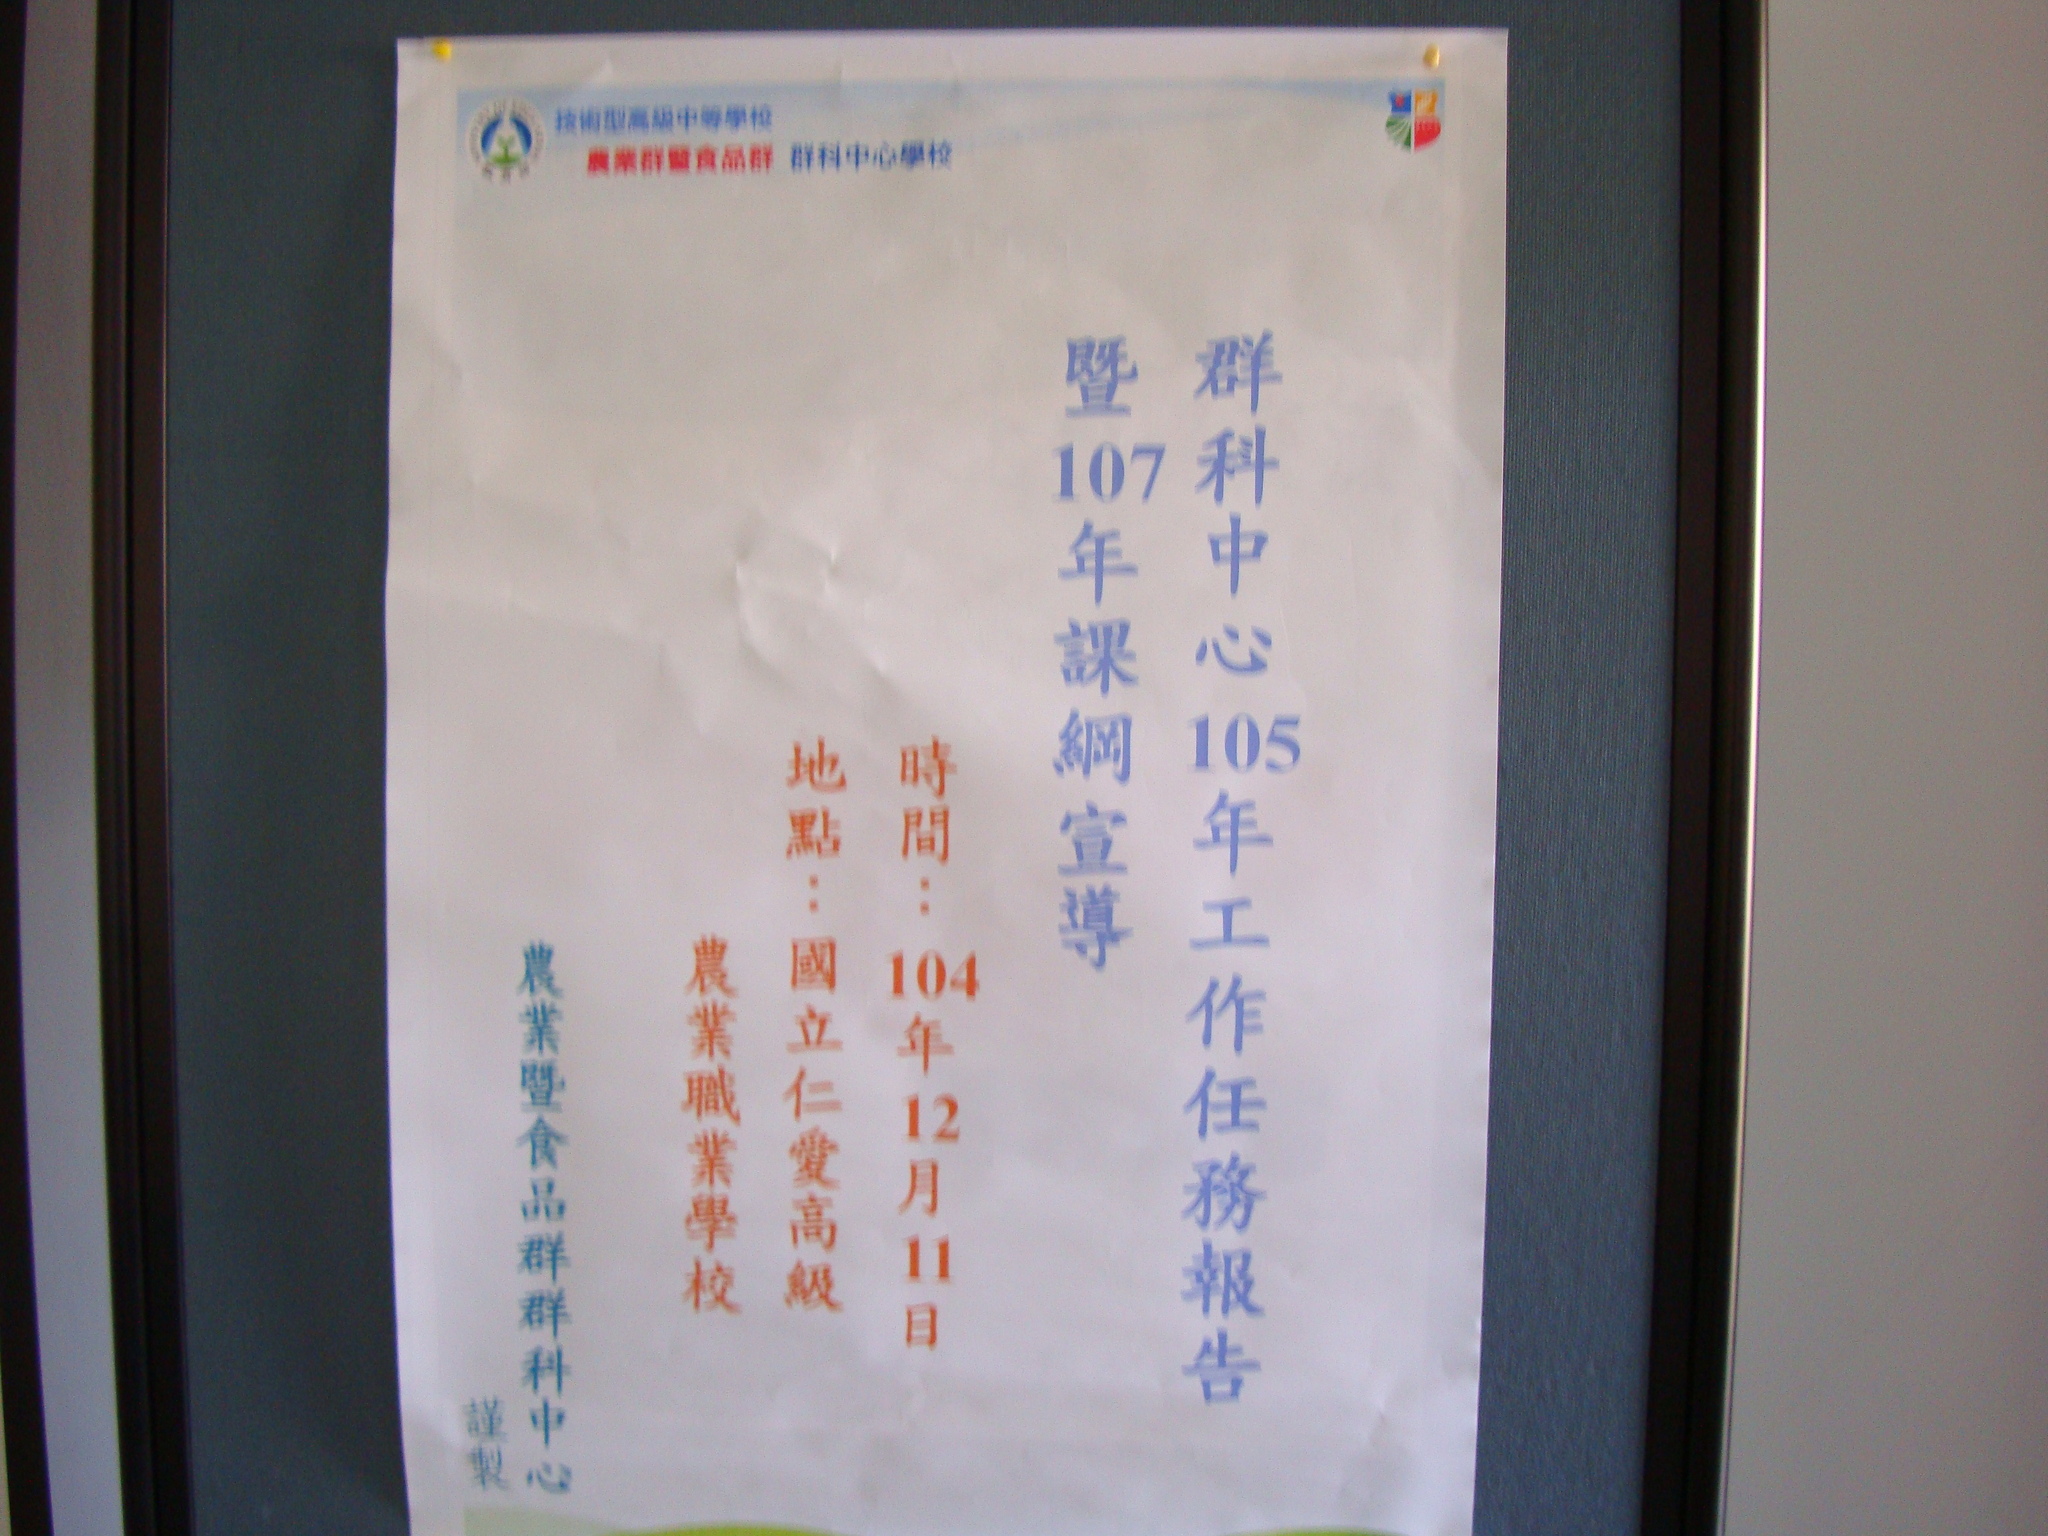 技術型高級中等學校
農業群暨食品群 群科中心學校
群科中心105年工作任務報告
暨107年課綱宣導
時間：104年12月11日
地點：國立仁愛高級
農業職業學校
農業暨食品群群科中心
謹製